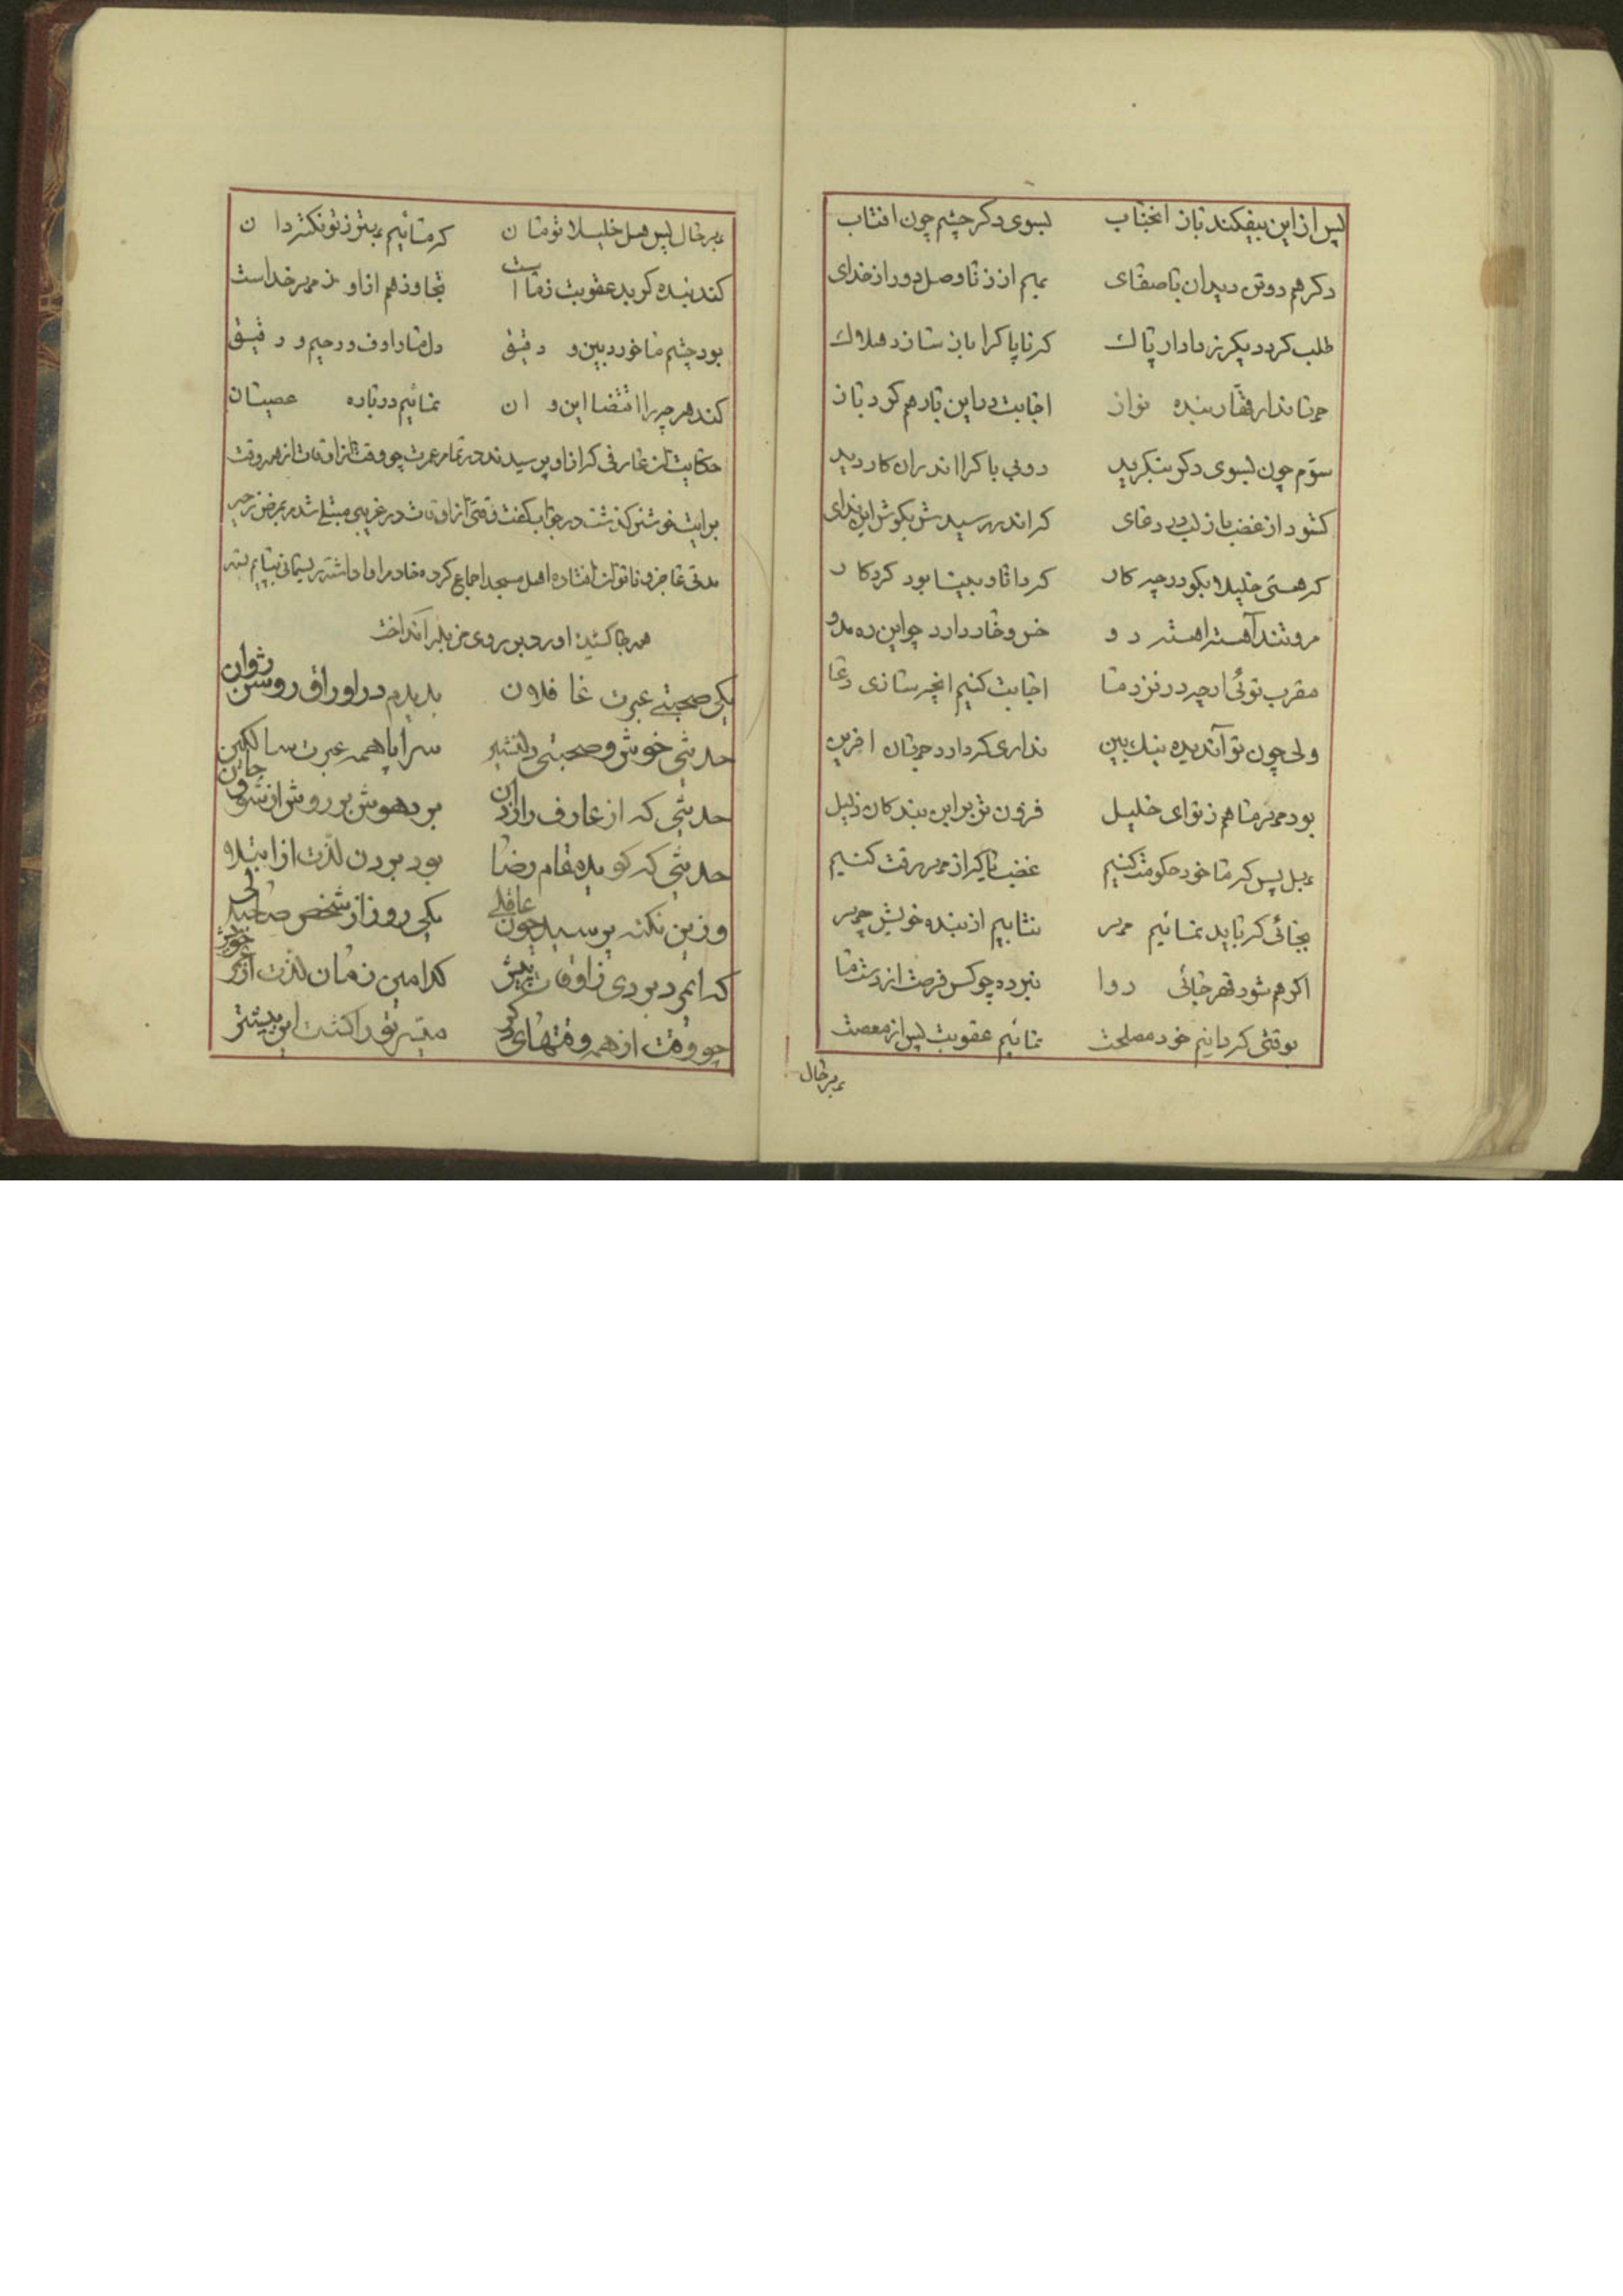 پس از این بیفکند باز انجناب بسوی دکر چشم چون افتاب
دکر هم دوتن دید ان باصفای بهم از زنا وصل و دور از خدای
طلب کرد دیکر ز دادار پاک که ناپاکرا باز سازد هلاک
جهاندار قهار بنده نواز اجابت در این بار هم کرد باز
سوّم چون بسوی دکر بنکرید دو بی باکرا اندران کار دید
کشود از غضب باز لب در دعای که اندر رسیدش بکوش این ندای
که هستی خلیلا بکو در چه کار که دانا و بینا بود کردکار
مرو تند آهسته اهسته رو خس و خار دارد چو این ره مدو
مقرب توئی ارچه در نزد ما اجابت کنیم انچه سازی دعا
ولی چون تو آندیده نیک بین نداری که دارد جهان افرین
بود مهر ما هم ز تو ای خلیل فزون تر بر این بندکان ذلیل
بهل پس که ما خود حکومت کنیم غضب تا که از مهر رقت کنیم
بجائی که باید نمائیم مهر نتابیم از بنده خویش چهر
اکر هم شود قهر جائی روا نبرده چو کس فرصت از دست ما
بوقتی که دانیم خود مصلحت نمائیم عقوبت پس از معصیت
بهر حال
بهر حال پس هل خلیلا تو مان که مائیم بهتر ز تو نکته دان
کند بنده کر بد عقوبت ز ماست تجاوز هم از او ز مهر خداست
بود چشم ما خورد بین و دقیق دل ما رؤف و رحیم و رقیق
کند هر چه را اقتضا این و ان نمائیم درباره عصیان
حکایت ان عارفی که از او پرسیدند در تمام عمرت چو وقت از اوقات از همه وقت
برایت خوشتر کذشت در جواب کفت وقتی از اوقات در غریبی مبتلی شدم بمرض زحیر
مدتی عاجز و ناتوان افتاده اهل مسجد اجماع کرده خادم را وا داشته ریسمانی بپایم بسته
همه جا کشید اورد بر روی مزبله انداخت
یکی صحبتی عبرت غافلان بدیدم در اوراق روشن روان
حدیثی خوش و صحبتی دلنشین سراپا همه عبرت سالکین
حدیثی که از عارف رازدان برد هوش بر روش از شوق جان
حدیثی که کوید مقام رضا بود بردن لذّت از ابتلاء
وزین نکته پرسید چون عاقلی یکی روز از شخص صاحبدلی
که ایمرد بودی ز اوقات پیش کدامین زمان لذّت از عمر خویش
چو وقت از همه وقتهای دکر میسّر تو را کشت این بیشتر